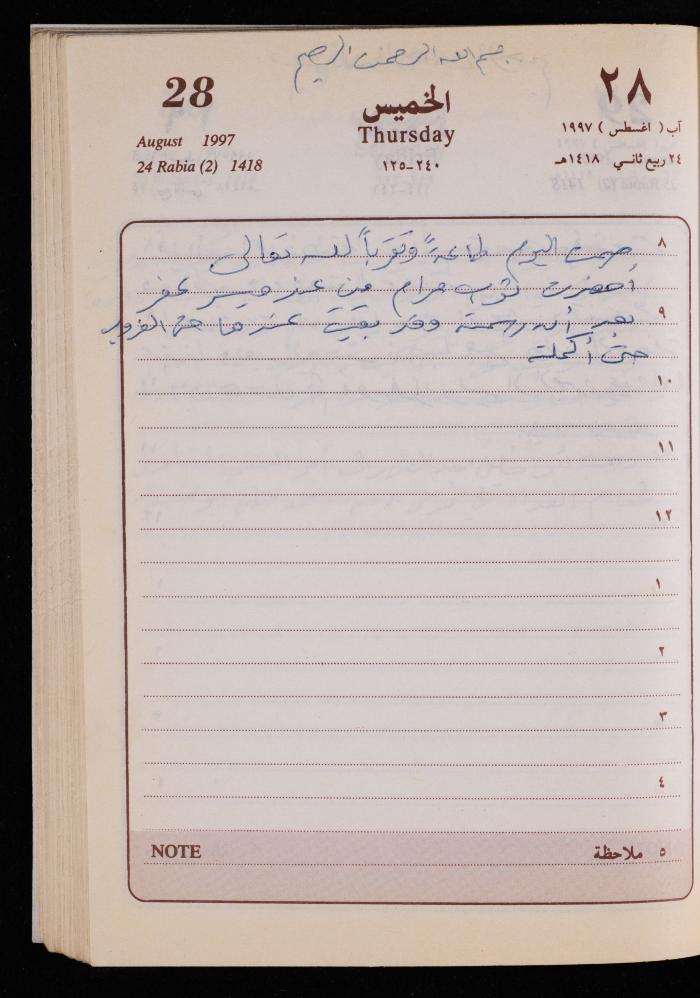 بسم الله الرحمن الرحيم
28
August 1997
24 Rabia (2) 1418
الخميس
Thursday
٢٤٠-١٢٥
٢٨
آب ( اغسطس ) ١٩٩٧
٢٤ ربيع ثاني ١٤١٨هـ
٨
صمت اليوم طاعةً وتقرباً لله تعالى
أحضرت ثوب مرام من عند ميسر
٩
بعد أن رسمته وقد بقيت عندها حتى الغروب
حتى أكملته
١٠
١١
١٢
١
٢
٣
٤
NOTE
٥ ملاحظة